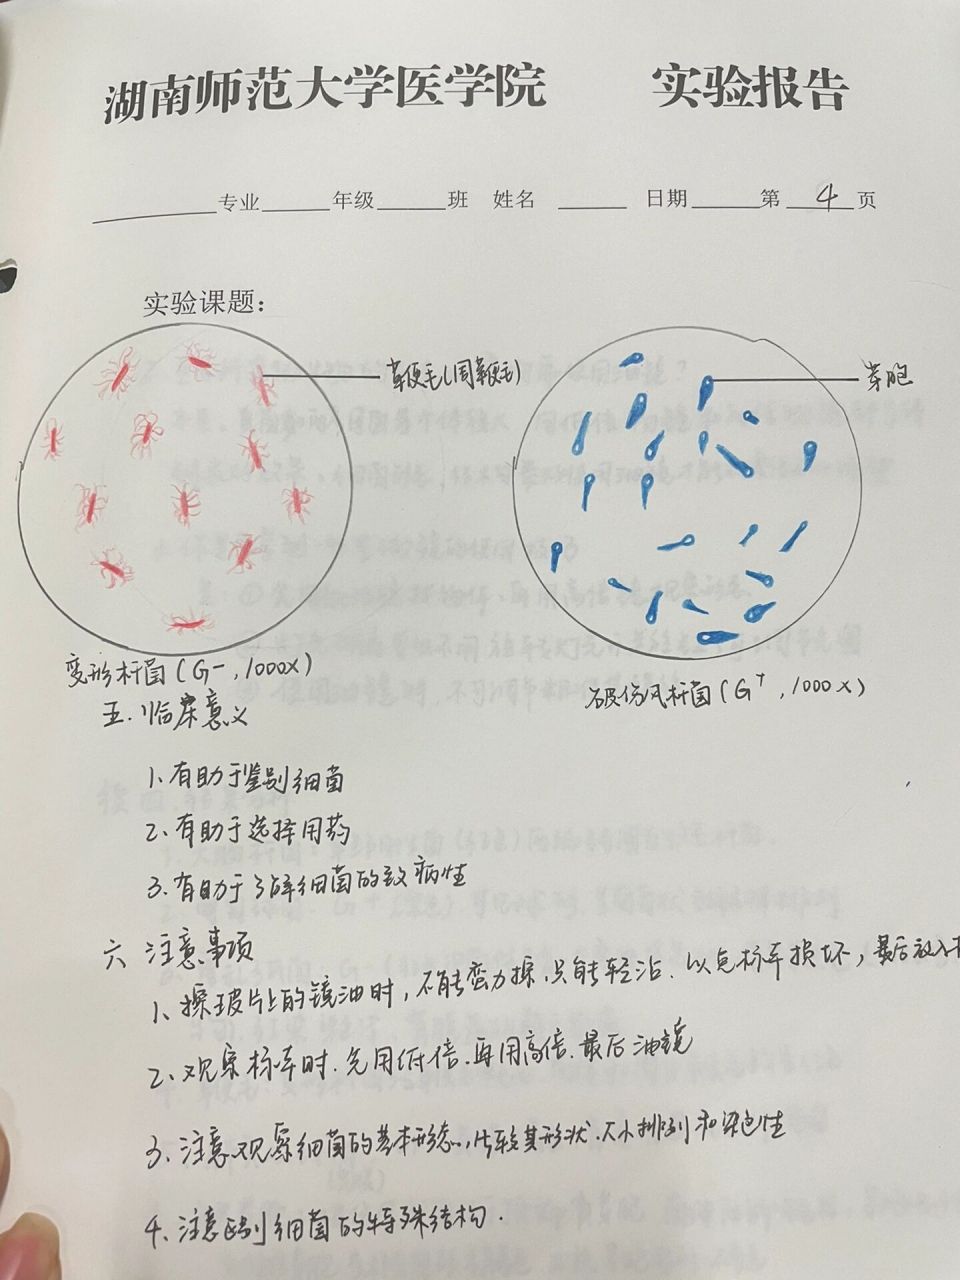 湖南师范大学医学院 实验报告
专业 年级 班 姓名 日期 第 4 页
实验课题：
鞭毛(周鞭毛)
芽胞
变形杆菌(G-,1000x)
破伤风杆菌(G+,1000x)
五.临床意义
1.有助于鉴别细菌
2.有助于选择用药
3.有助于了解细菌的致病性
六 注意事项
1、擦玻片上的镜油时,不能蛮力擦.只能轻沾.以免标本损坏,最后放入
2、观察标本时.先用低倍.再用高倍.最后油镜
3、注意观察细菌的基本形态.比较其形状.大小排列和染色性
4.注意区别细菌的特殊结构.